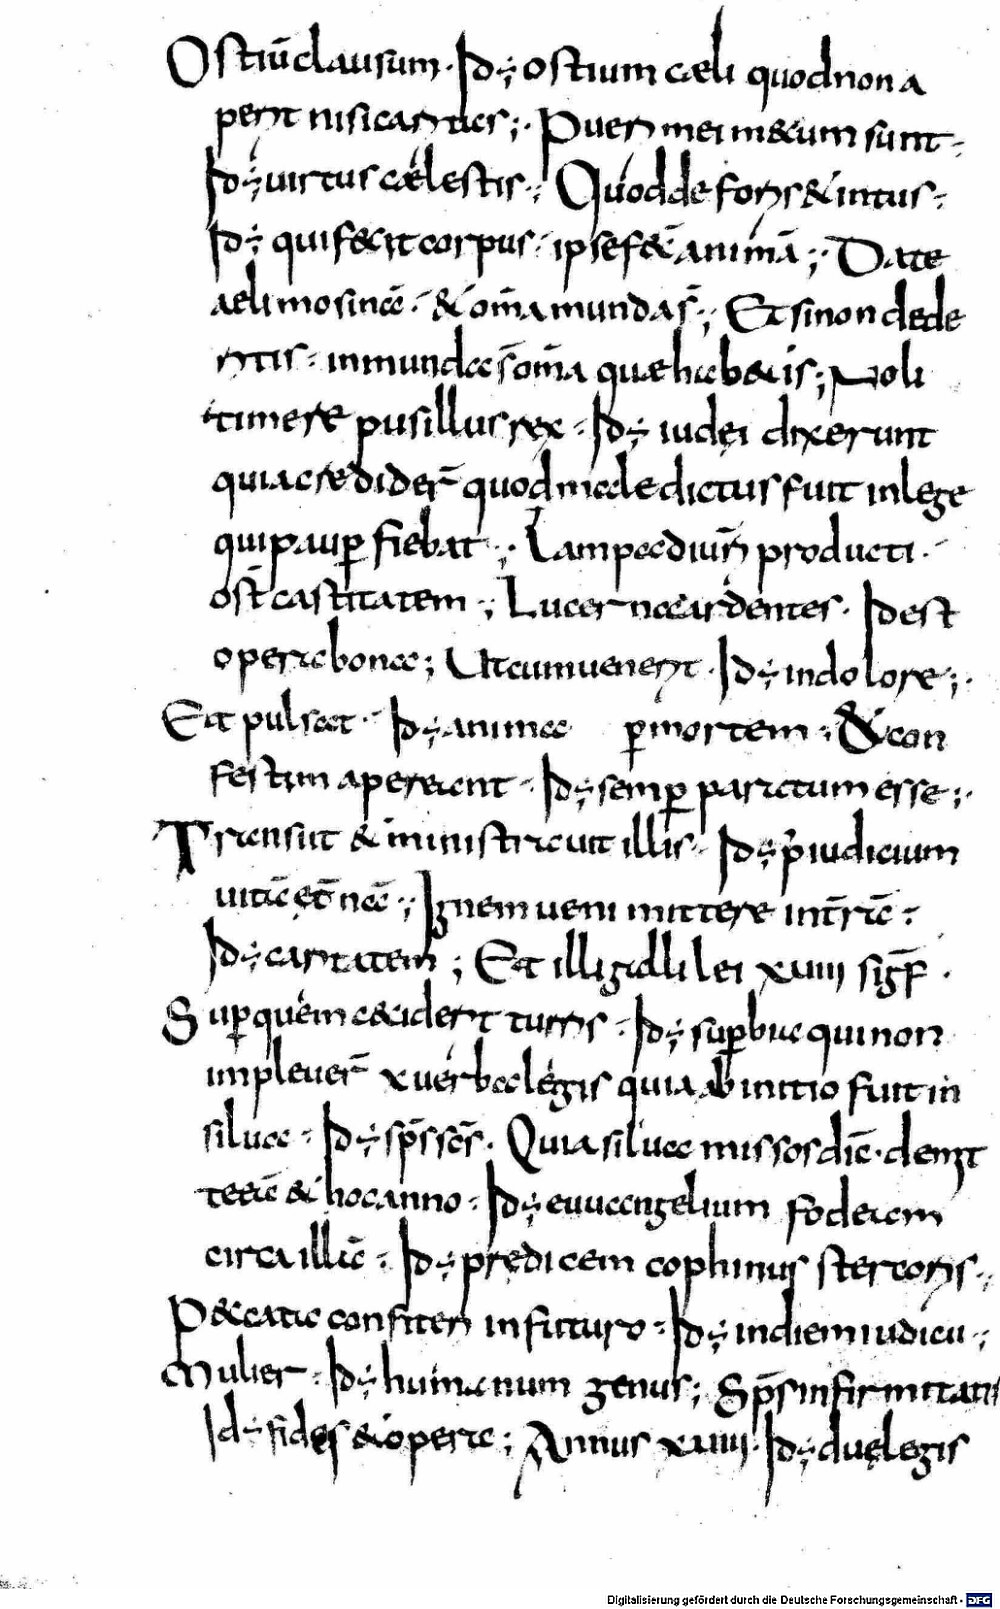 Ostiū clausum· Id ÷ ostium cæli quod non a
perit nisi caritas; Pueri mei mecum sunt·
Id ÷ uirtus cælestis; Quod de foris & intus·
Id ÷ qui fecit corpus· ipse fec̄ animā; Date
aelimosinā· & om̄a munda s̄; Et si non dede
ritis· inmunda s̄ om̄a quæ habetis; Noli
timere pusillus rex· Id ÷ iudęi dixerunt
quia credider̄ quod maledictus fuit in lege
qui paup̱ fiebat; Lampadiuṝ producti·
ost̄ castitatem; Lucernæ ardentes· Id est
opera bona; Ut cum uenerit· Id ÷ in dolore;
Et pulsat· Id ÷ animæ p̱ mortem; & con
festim aperiant· Id ÷ semp̱ paratum esse;
Transiit & ministrauit illis· Id ÷ p̄ iudicium
uitā ęt̄nā; Ignem ueni mittere in t̄rā·
Id ÷ caritatem; Et illi galilei xuiii sigf̄·
Sup̱ quem cecidert turris· Id ÷ sup̱bus qui non
impleuer̄ x uerba legis quia ab initio fuit in
silua· Id ÷ sp̄s sc̄s· Quia silua missos dic̄· demit
te eā & hoc anno· Id ÷ euuangelium fodeam
circa illā· Id ÷ prędicem cophinus stercoris·
Peccata confiteri in futuro· Id ÷ in diem iudicii;
Mulier· Id ÷ humanum genus; Sp̄s infirmitatis
Id ÷ fides & opera; Annus xuiii· Id ÷ duę legis
Digitalisierung gefördert durch die Deutsche Forschungsgemeinschaft - DFG